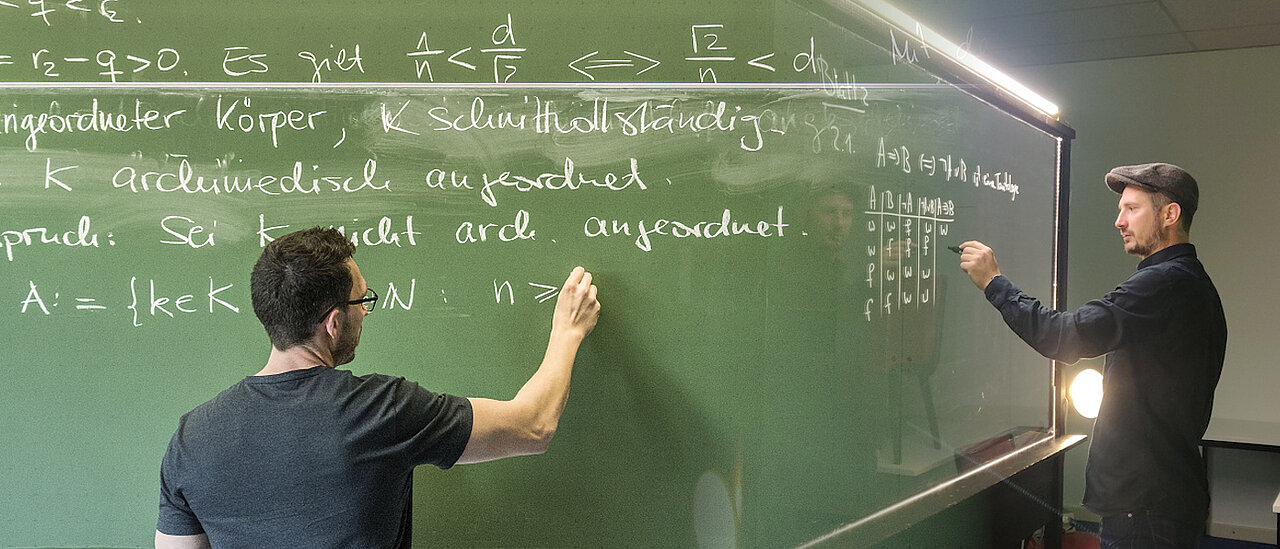 < q < ε.
= r₂ - q > 0. Es gilt 1/n < d/√2 ⟺ √2/n < d
ngeordneter Körper, K schnittvollständig.
K archimedisch angeordnet.
pruch: Sei K nicht arch. angeordnet.
A := {k ∈ K N : n ≥
Mit d
Blatt 2
2.1.
A ⇒ B ⟺ ¬A ∨ B ist eine Tautologie
A | B | ¬A | ¬A∨B | A⇒B
w | w | f | w | w
w | f | f | f
f | w | w | w
f | f | w | w